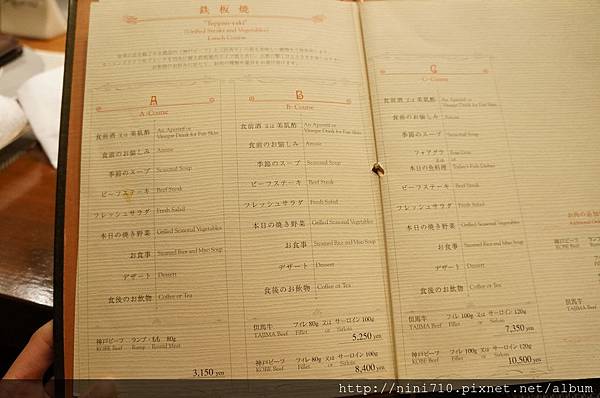 鉄板焼
"Teppan-yaki"
(Grilled Steaks and Vegetables)
Lunch Course
A
A-Course
食前酒 又は 美肌酢 An Aperitif or
Vinegar Drink for Fair Skin
食前のお愉しみ Amuse
季節のスープ Seasonal Soup
ビーフステーキ Beef Steak
フレッシュサラダ Fresh Salad
本日の焼き野菜 Grilled Seasonal Vegetables
お食事 Steamed Rice and Miso Soup
デザート Dessert
食後のお飲物 Coffee or Tea
神戸ビーフ ランプ・もも 80g
KOBE Beef Rump・Round Meat
3,150 yen
B
B-Course
食前酒 又は 美肌酢 An Aperitif or
Vinegar Drink for Fair Skin
食前のお愉しみ Amuse
季節のスープ Seasonal Soup
ビーフステーキ Beef Steak
フレッシュサラダ Fresh Salad
本日の焼き野菜 Grilled Seasonal Vegetables
お食事 Steamed Rice and Miso Soup
デザート Dessert
食後のお飲物 Coffee or Tea
但馬牛 フィレ 80g 又は サーロイン 100g
TAJIMA Beef Fillet or Sirloin
5,250 yen
神戸ビーフ フィレ 80g 又は サーロイン 100g
KOBE Beef Fillet or Sirloin
8,400 yen
C
C-Course
食前酒 又は 美肌酢 An Aperitif or
Vinegar Drink for Fair Skin
食前のお愉しみ Amuse
季節のスープ Seasonal Soup
フォアグラ Foie Gras
又は or
本日の魚料理 Today's Fish Dishes
ビーフステーキ Beef Steak
フレッシュサラダ Fresh Salad
本日の焼き野菜 Grilled Seasonal Vegetables
お食事 Steamed Rice and Miso Soup
デザート Dessert
食後のお飲物 Coffee or Tea
但馬牛 フィレ 100g 又は サーロイン 120g
TAJIMA Beef Fillet or Sirloin
7,350 yen
神戸ビーフ フィレ 100g 又は サーロイン 120g
KOBE Beef Fillet or Sirloin
10,500 yen
お肉の追加
但馬牛
TAJIMA Beef
神戸ビーフ
KOBE Beef
http://nini710.pixnet.net/album